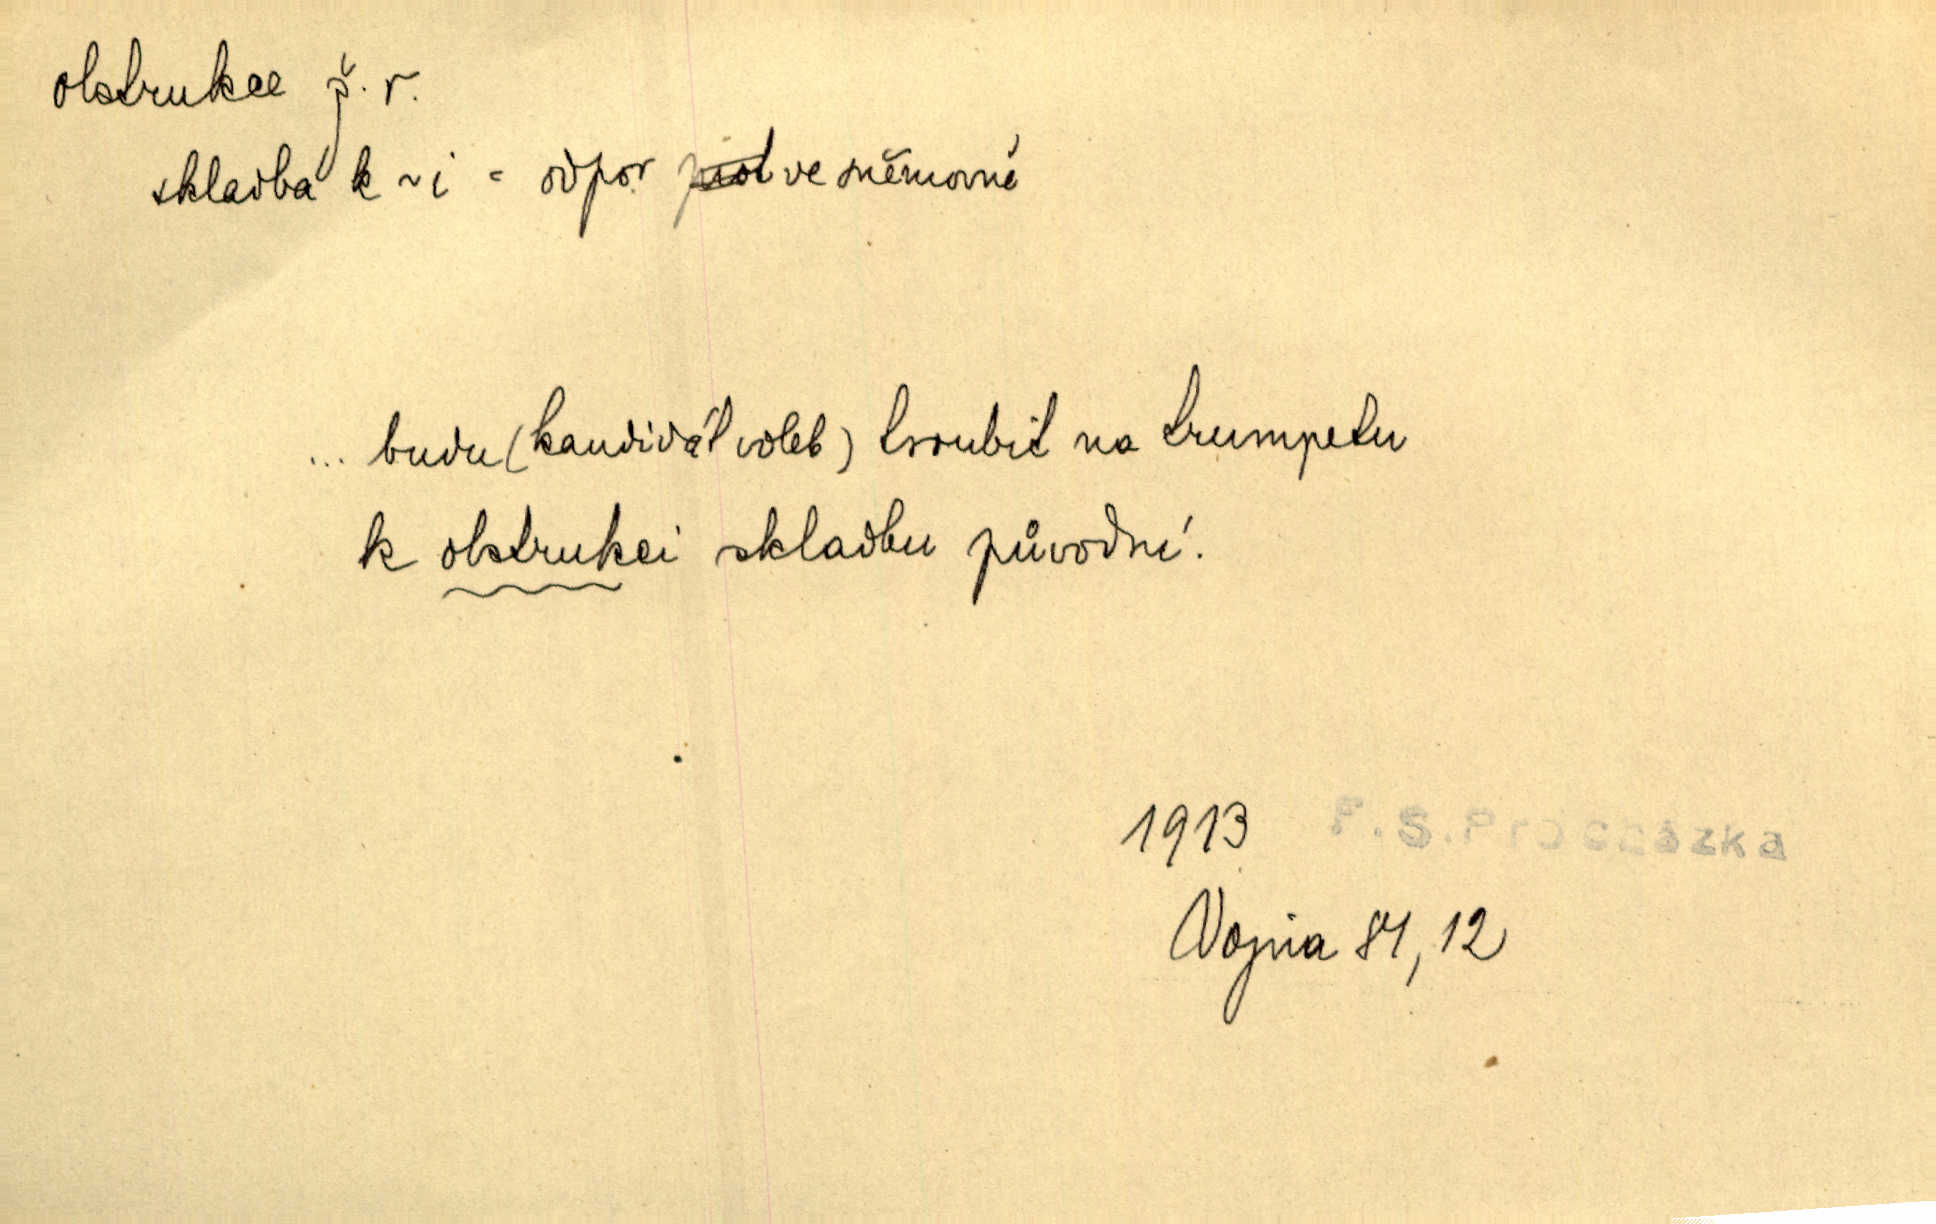 obstrukce ž. r.
skladba k ~i = odpor ve sněmovně
... budu (kandidát voleb) troubit na trumpetu
k obstrukci skladbu původní.
1913 F.S.Procházka
Vojna 81, 12